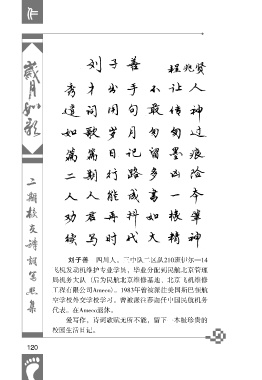 作
岁月如歌
二期校友诗词写照集
刘子善 程兆贤
秀才出手不让人
遣词用句最传神
如歌岁月匆匆过
篇篇日记留墨痕
二期行路多凶险
人人能成书一本
功君再抖如椽笔
续写时代大精神
刘子善 四川人。三中队二区队210班伊尔—14
飞机发动机维护专业学员。毕业分配到民航北京管理
局机务大队（后为民航北京维修基地、北京飞机维修
工程有限公司Ameco）。1983年曾被派往美国斯巴顿航
空学校外文学校学习。曾被派往莎迦任中国民航机务
代表。在Ameco退休。
爱写作，诗词歌赋无所不能，留下一本极珍贵的
校园生活日记。
120